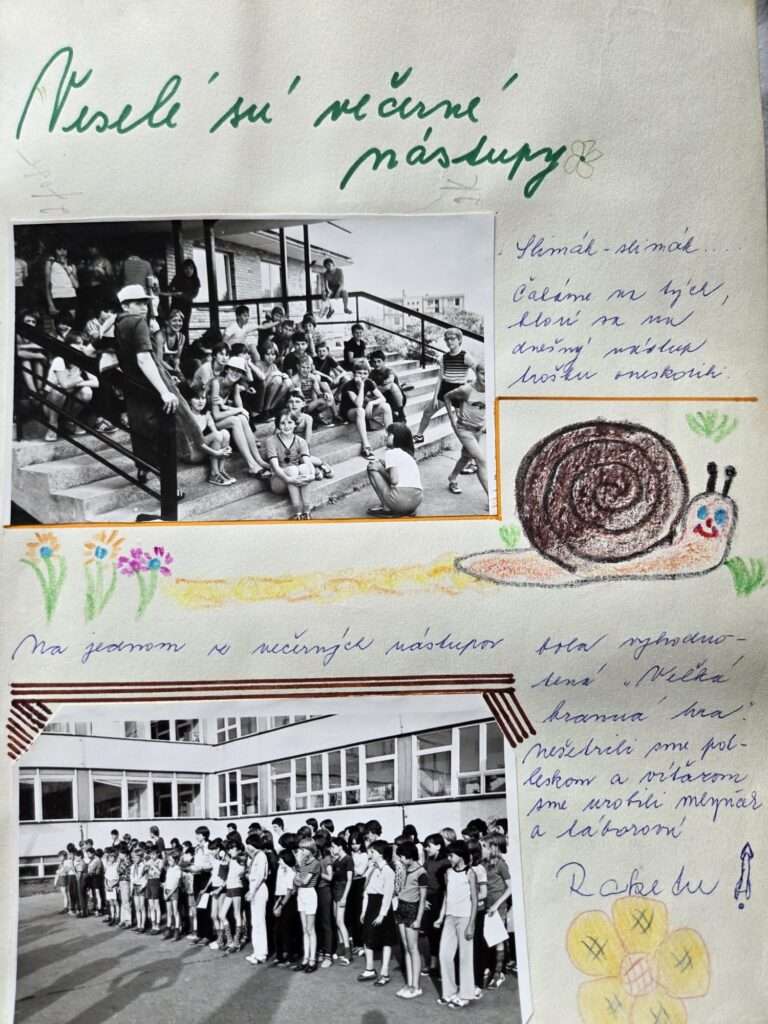 Veselé sú večerné
nástupy
Slimák - slimák....
Čakáme na tých,
ktorí sa na
dnešný nástup
trošku oneskorili.
Na jednom z večerných nástupov bola vyhodno-
tená "Veľká
branná hra".
Nešetrili sme pot-
leskom a víťazom
sme urobili mlynčak
a táborovú
Raketu !